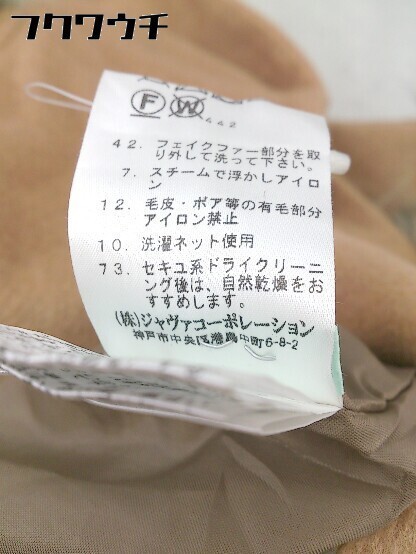 フクワウチ
F W
442
42. フェイクファー部分を取
り外して洗って下さい。
7. スチームで浮かしアイロ
ン
12. 毛皮・ボア等の有毛部分
アイロン禁止
10. 洗濯ネット使用
73. セキユ系ドライクリーニ
ング後は、自然乾燥をお
すすめします。
(株)ジャヴァコーポレーション
神戸市中央区港島中町6-8-2